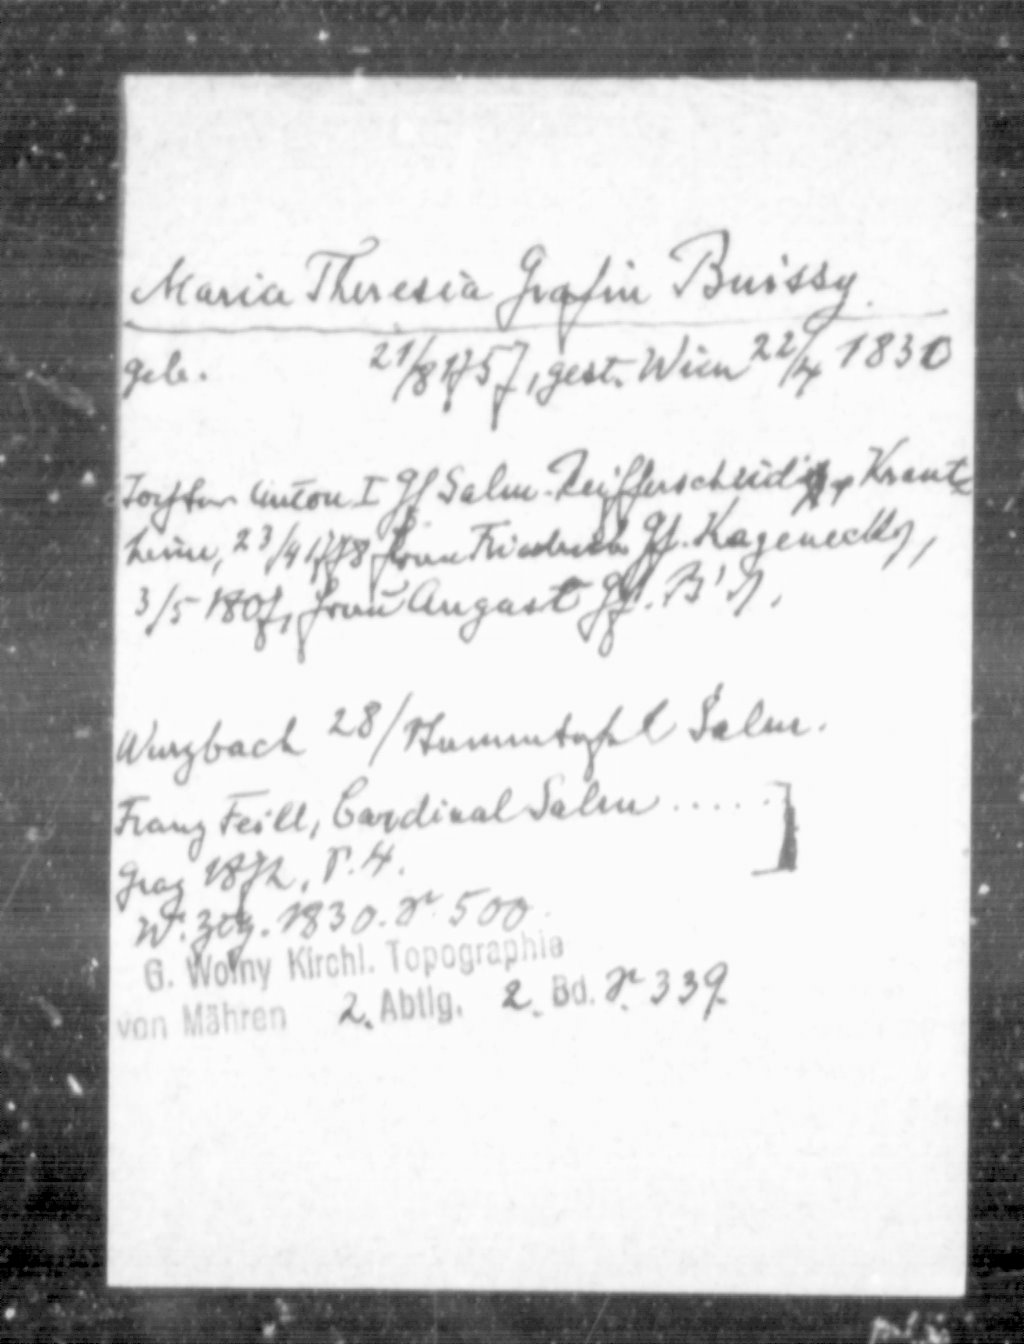 Maria Theresia Gräfin Buissy.
geb. 21/8 1757, gest. Wien 22/4 1830
Tochter Anton I Gf Salm-Reifferscheid, Kraut
heim, 23/4 1778 Frau Friedrich Gf. Kageneck's,
3/5 1807, Frau August Gf. B's.
Wurzbach 28/Stammtafel Salm.
Franz Feill, Cardinal Salm .....]
Graz 1872, S. 4.
W. Ztg. 1830. S. 500.
G. Wolny Kirchl. Topographie
von Mähren 2. Abtlg. 2. Bd. S. 339.